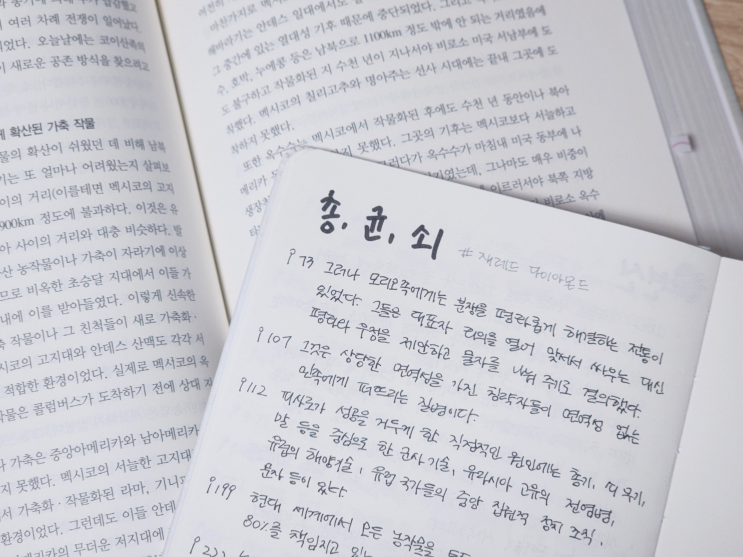 여러 차례 전쟁이 일어났다.
었다. 오늘날에는 코이산족의
이 새로운 공존 방식을 찾으려고
확산된 가축 작물
물의 확산이 쉬웠던 데 비해 남북
기는 또 얼마나 어려웠는지 살펴보
이의 거리(이를테면 멕시코의 고지
900km 정도에 불과하다. 이것은 유
아 사이의 거리와 대충 비슷하다. 발
산 농작물이나 가축이 자라기에 이상
므로 비옥한 초승달 지대에서 이들 가
내에 이를 받아들였다. 이렇게 신속한
축 작물이나 그 친척들이 새로 가축화·
시코의 고지대와 안데스 산맥도 각각 서
적합한 환경이었다. 실제로 멕시코의 옥
작물은 콜럼버스가 도착하기 전에 상대
가축은 중앙아메리카와 남아메리카
지 못했다. 멕시코의 서늘한 고지대
서 가축화·작물화된 라마, 기니피
환경이었다. 그런데도 이들 안데
메리카의 무더운 저지대에
마찬가지로 멕시코
해바라기는 안데스 일대에서도
그 중간에 있는 열대성 기후 때문에 중단되었다. 그리고
수, 호박, 누에콩 등은 남북으로 1100km 정도 밖에 안 되는 거리였음에
도 불구하고 작물화된 지 수천 년이 지나서야 비로소 미국 서남부에 도
착했다. 멕시코의 칠리고추와 명아주는 선사 시대에는 끝내 그곳에 도
착하지 못했다.
또한 옥수수는 멕시코에서 작물화된 후에도 수천 년 동안이나 북아
메리카 지 못했다. 그곳의 기후는 멕시코보다 서늘하고
그러다가 옥수수가 마침내 미국 동부에 나
였는데, 그나마도 매우 비중이
이르러서야 북쪽 지방
비로소 옥수
총, 균, 쇠 # 재레드 다이아몬드
p 73 그러나 모리오족에게는 분쟁을 평화롭게 해결하는 전통이
있었다. 그들은 대표자 회의를 열어 맞서서 싸우는 대신
평화와 우정을 제안하고 물자를 나눠 주기로 결의했다.
p 107 그것은 상당한 면역성을 가진 침략자들이 면역성 없는
민족에게 퍼뜨리는 질병이다.
p 112 피사로가 성공을 거두게 한 직접적인 원인에는 총기, 쇠 무기,
말 등을 중심으로 한 군사 기술, 유라시아 고유의 전염병,
유럽의 해양기술, 유럽 국가들의 중앙 집권적 정치 조직,
문자 등이 있다.
p 199 현대 세계에서 모든 농작물을
80%를 책임지고 있는
p 222